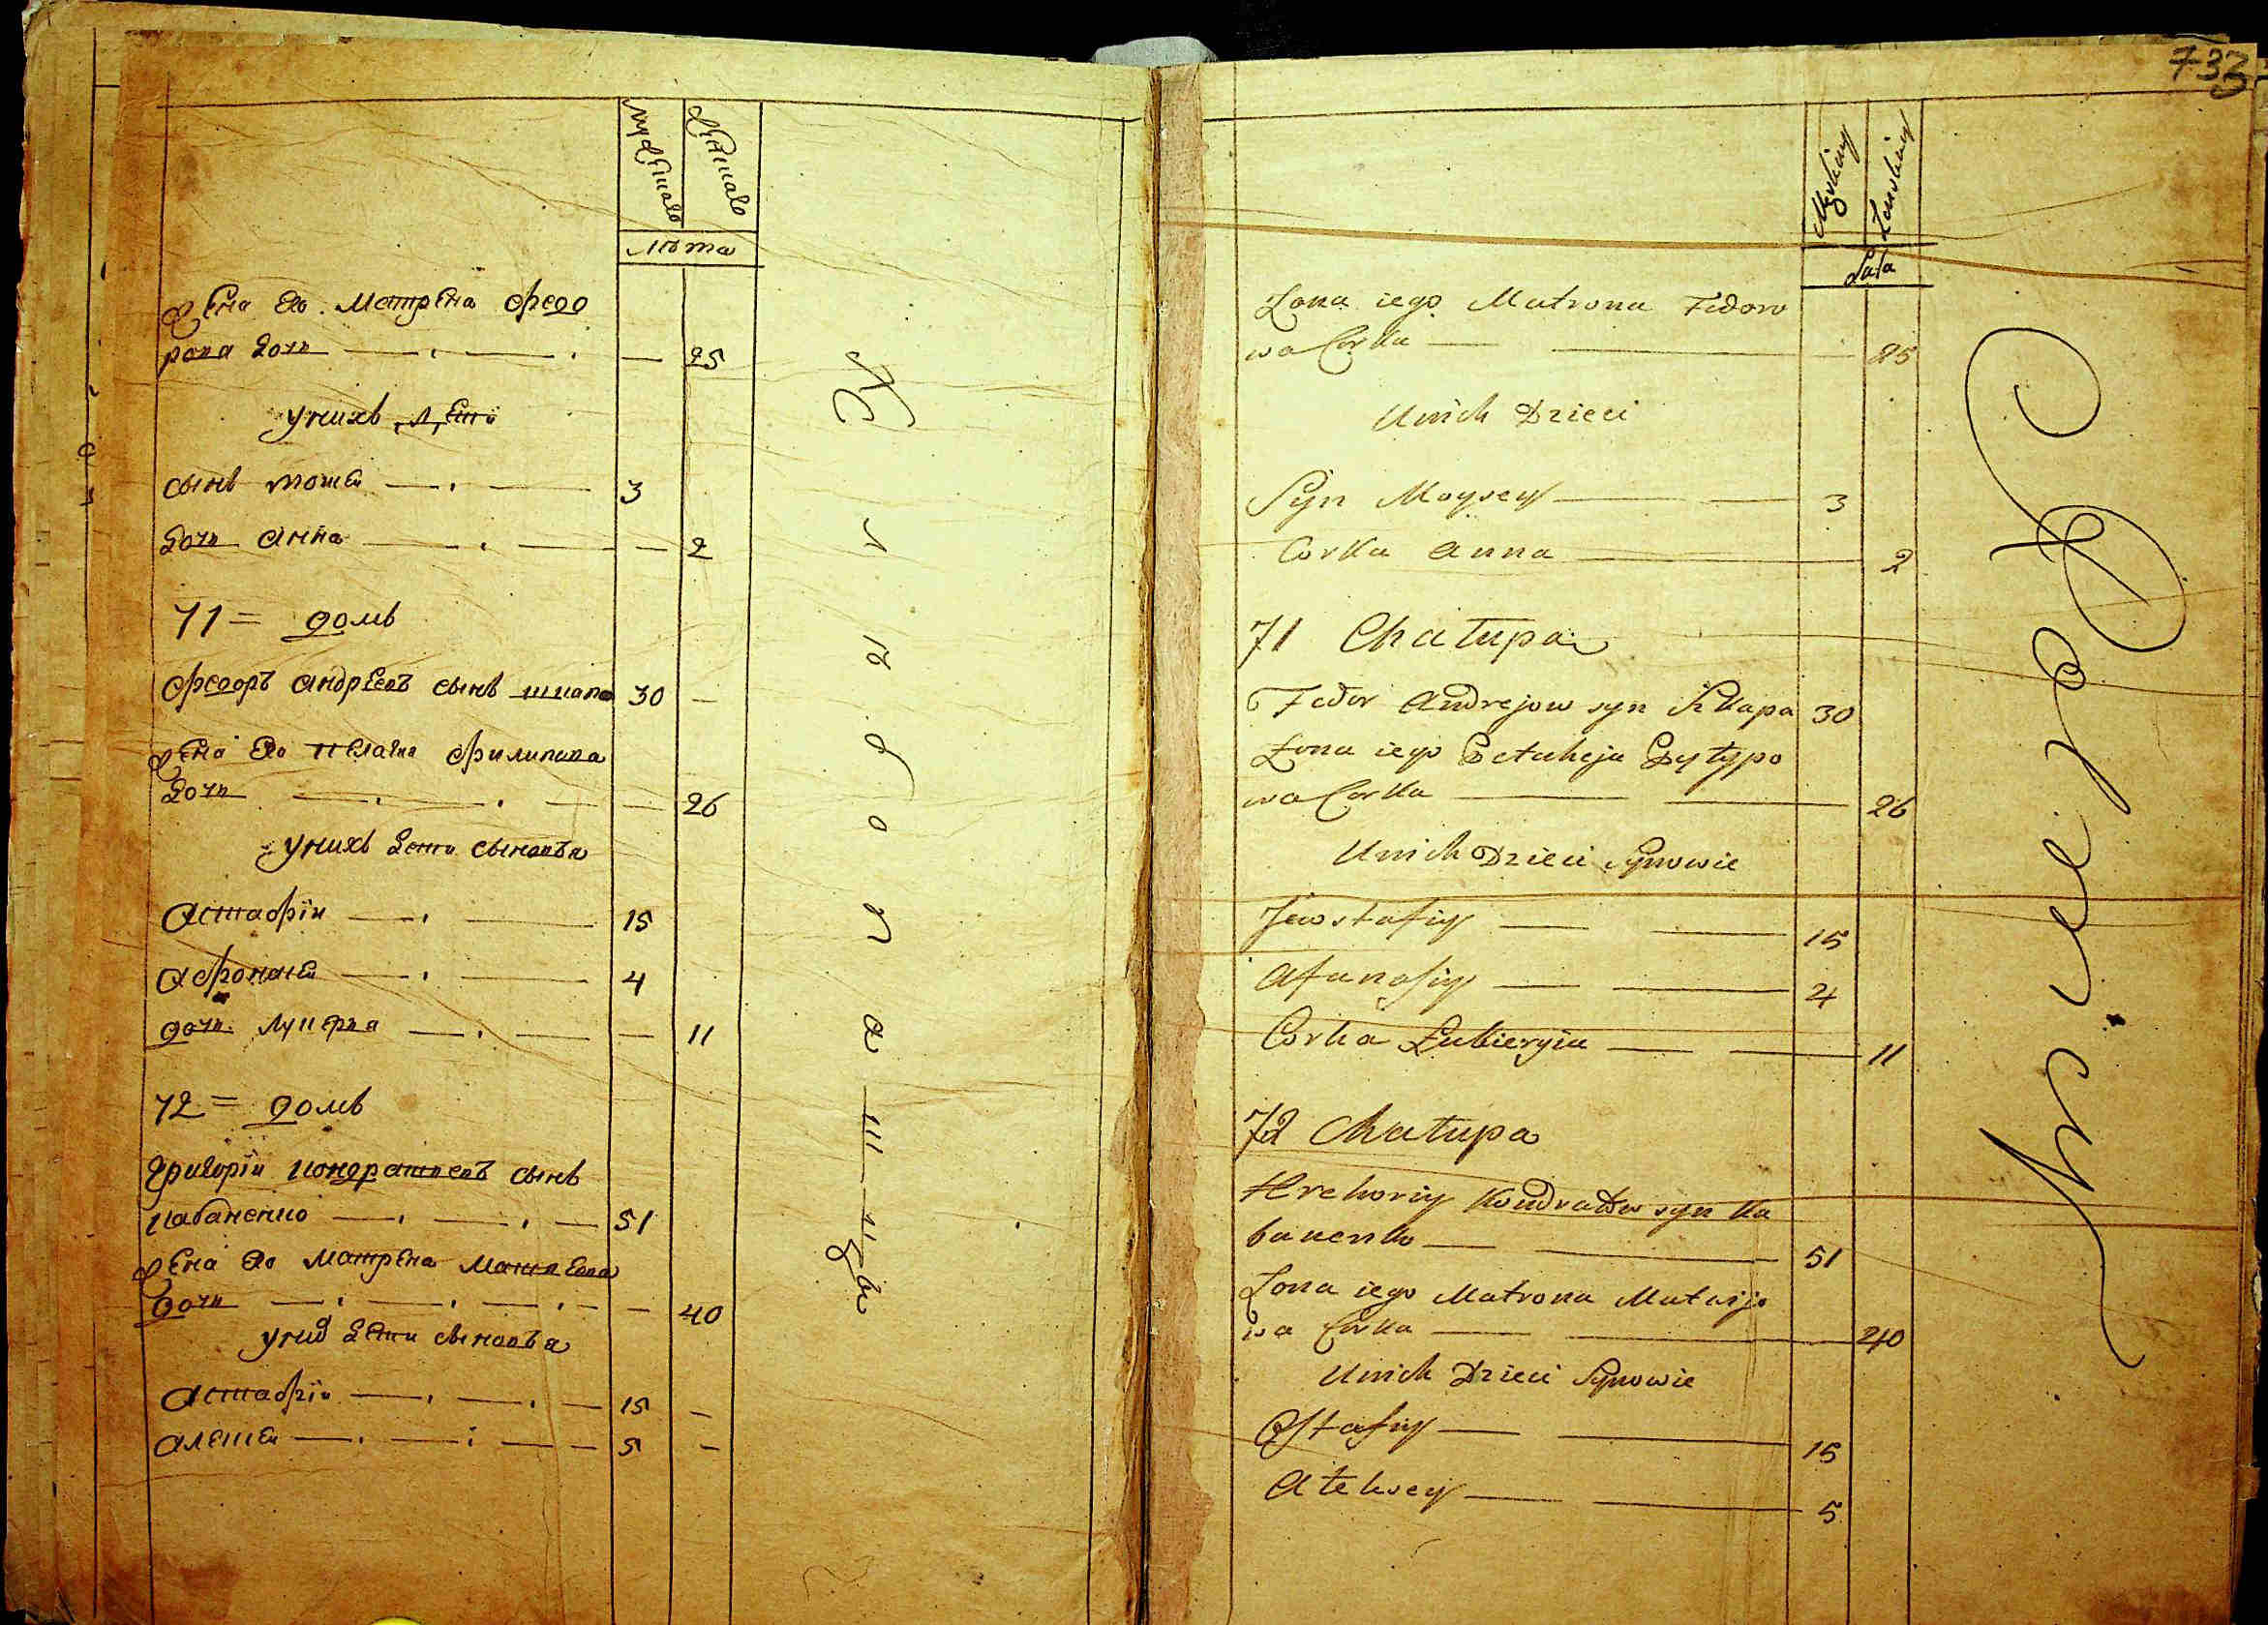 мужеска
женска
лѣта
жена его Матрена Федо
рова дочь — — — 25
у нихъ дети
сынъ мойсей — — 3
дочь Анна — — — 2
71 = домъ
Федоръ Андреевъ сынъ шкапа 30 —
жена его пелагия Филипова
дочь — — — — 26
у нихъ дети сыновья
Астафiй — — 15
Афонасей — — 4
дочь Лукерья — — — 11
72 = домъ
Григорiй кондратьевъ сынъ
кабаненко — — — 51
жена его матрена Матвеева
дочь — — — — — 40
у них дети сыновья
Астафiй — — — 15 —
Алексей — — — — 5 —
733
Męskiey
Żenskiey
Lata
Żona iego Matrona Fedoro
wa Corka — — — 25
U nich Dzieci
Syn Moysey — — 3
Corka Anna — 2
71 Chałupa
Fedor Andrejow syn Szkapa 30
Żona iego Pełaheja Pyłypo
wa Corka — — 26
U nich Dzieci Synowie
Jewstafiy — — 15
Afanasiy — — 4
Corka Łukieryia — — 11
72 Chałupa
Hrehoriy Kondratow syn Ka
banenko — — 51
Żona iego Matrona Matwijo
wa Corka — — 40
U nich Dzieci Synowie
Ostafiy — — 15
Ałexsey — — 5